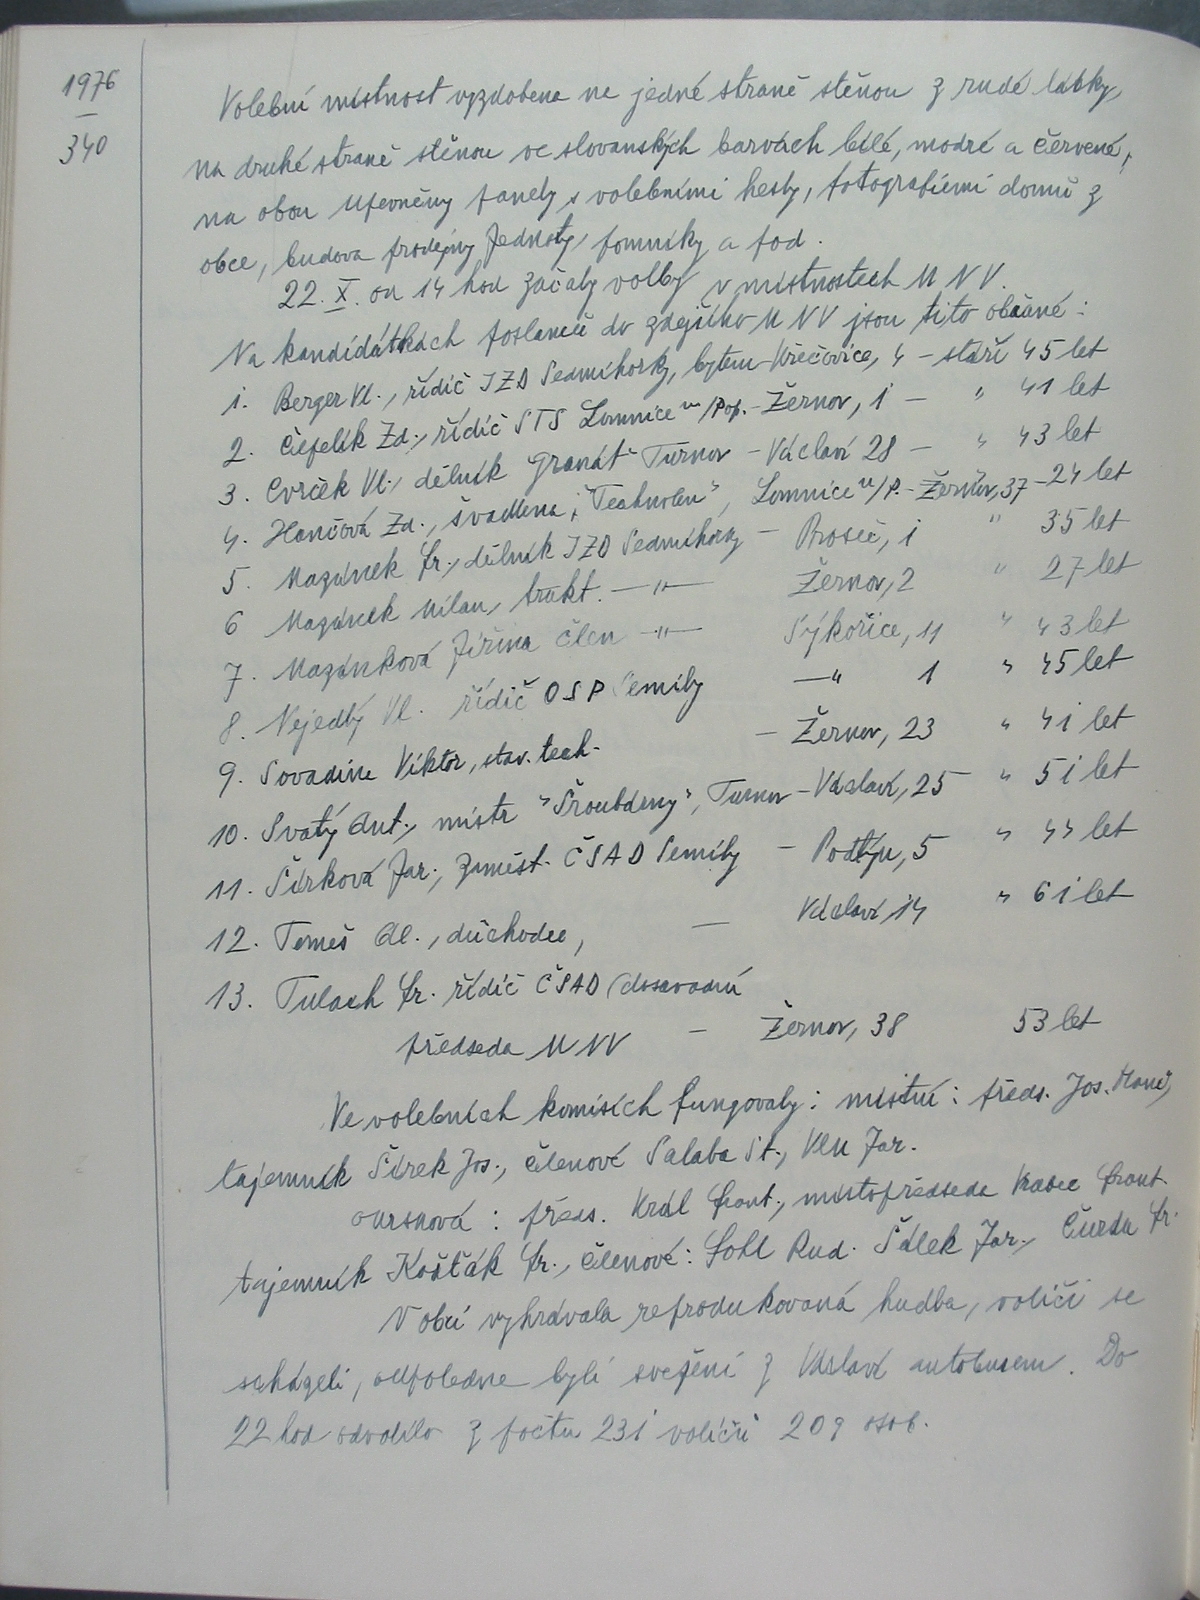 1976
340
Volební místnost vyzdobena na jedné straně stěnou z rudé látky,
na druhé straně stěnou ve slovanských barvách bílé, modré a červené,
na obou upevněny panely s volebními hesly, fotografiemi domů z
obce, budova prodejny Jednoty, pomníky a pod.
22. X. od 14 hod začaly volby v místnostech MNV.
Na kandidátkách poslanců do zdejšího MNV jsou tito občané:
1. Berger Vl., řidič JZD Sedmihorky, bytem Křečovice, 4 – stáří 45 let
2. Čepelík Zd., řidič STS Lomnice n/Pop. – Žernov, 1 – " 41 let
3. Cvrček Vl., dělník Granát Turnov – Václaví 28 – " 43 let
4. Hančová Zd., švadlena, "Technolen", Lomnice n/P. – Žernov, 37 – 24 let
5. Mazánek Fr., dělník JZD Sedmihorky – Proseč, 1 " 35 let
6 Mazánek Milan, trakt. —"— Žernov, 2 " 27 let
7. Mazánková Jiřina člen —"— Sýkořice, 11 " 43 let
8. Nejedlý Vl. řidič OSP Semily —" 1 " 45 let
9. Sovadina Viktor, stav. tech. – Žernov, 23 " 41 let
10. Svatý Ant., mistr "Šroubárny", Turnov – Václaví, 25 " 51 let
11. Šírková Jar., zaměst. ČSAD Semily – Podtýn, 5 " 44 let
12. Tomeš Al., důchodce, — Václaví, 14 " 61 let
13. Tulach Fr. řidič ČSAD (dosavadní
předseda MNV – Žernov, 38 53 let
Ve volebních komisích fungovaly: místní: předs. Jos. Hanč,
tajemník Šírek Jos., členové Salaba St., Vlk Jar.
okrsková: předs. Král Frant., místopředseda Frant.
tajemník Košťák Fr., členové: Sohl Rud. Šálek Jar., Čurda Fr.
V obci vyhrávala reprodukovaná hudba, voliči se
scházeli, odpoledne byli sveženi z Václaví autobusem. Do
22 hod odvolilo z počtu 231 voličů 209 osob.